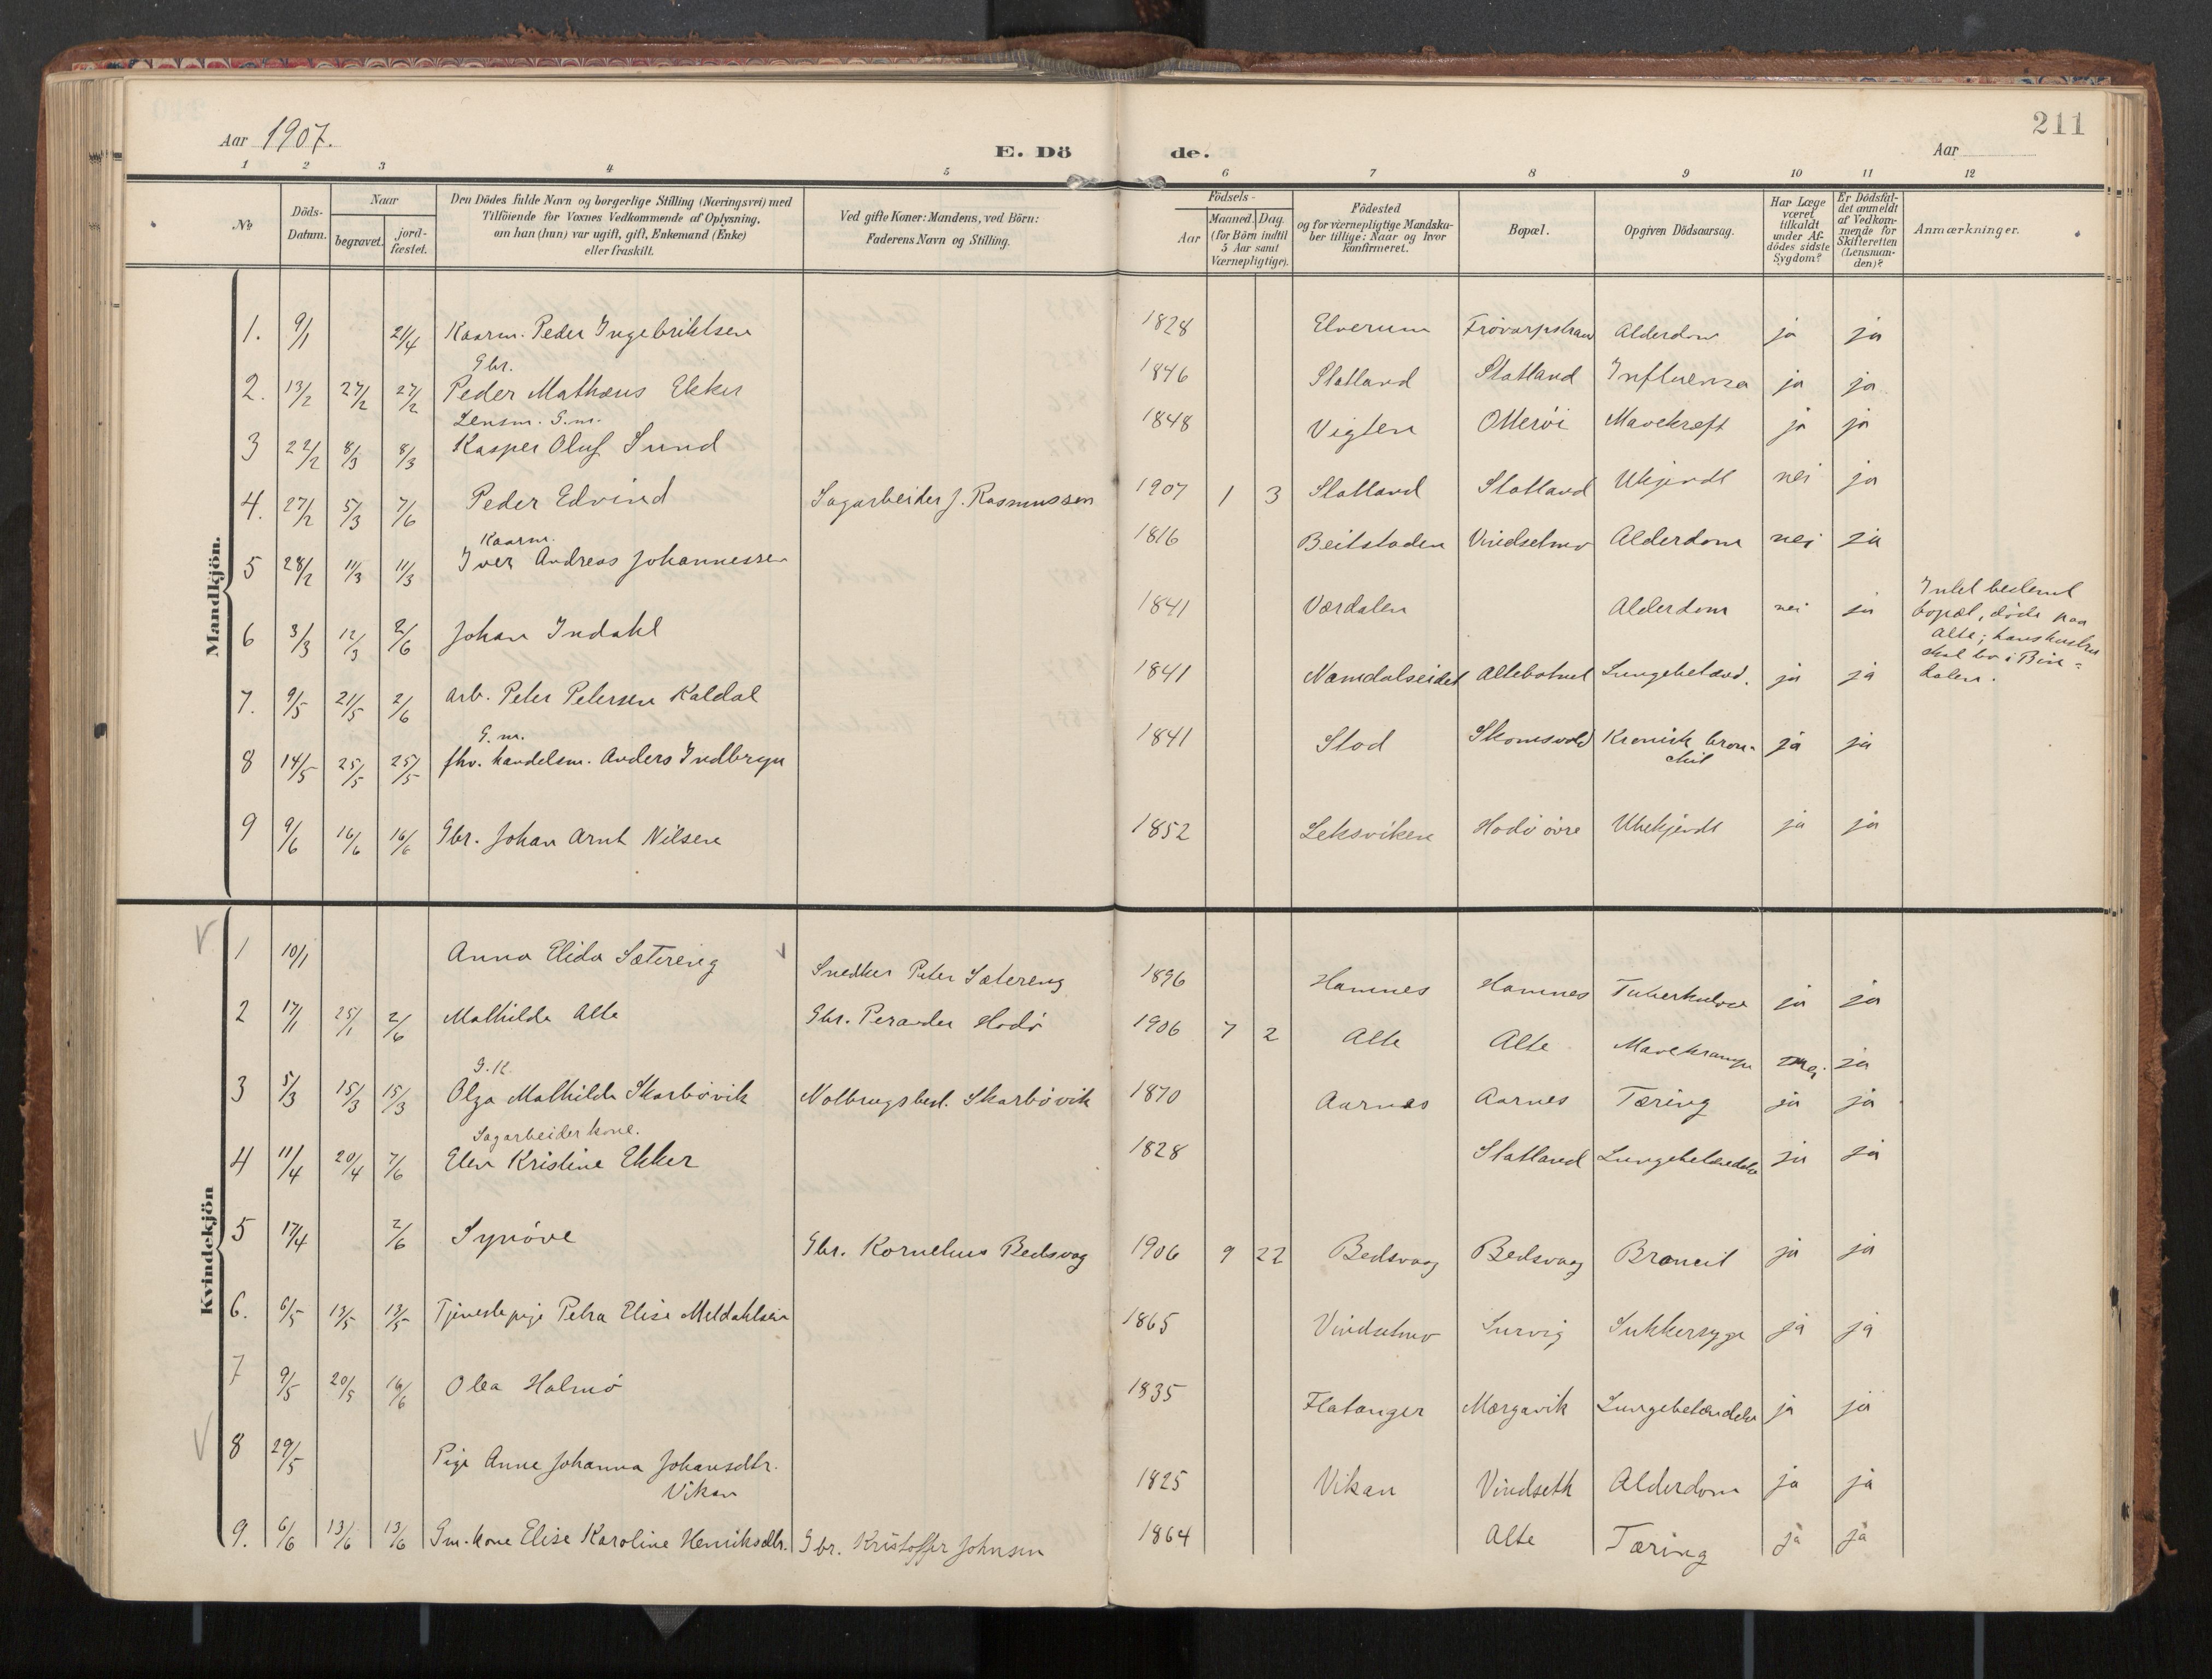 211
Aar 1907.
E. Dö de.
Aar
1 2 3 4 5 6 7 8 9 10 11 12
No
Döds-Datum.
Naar
begravet.
jord-fæstet.
Den Dödes fulde Navn og borgerlige Stilling (Næringsvei) med
Tilföiende for Voxnes Vedkommende af Oplysning,
om han (hun) var ugift, gift, Enkemand (Enke)
eller fraskilt.
Ved gifte Koner: Mandens, ved Börn:
Faderens Navn og Stilling.
Födsels-
Aar
Maaned. Dag.
(for Börn indtil
5 Aar samt
Værnepligtige).
Födested
og for værnepligtige Mandska-
ber tillige: Naar og hvor
konfirmeret.
Bopæl.
Opgiven Dödsaarsag.
Har Læge
været
tilkaldt
under Af-
dödes sidste
Sygdom?
Er Dödsfal-
det anmeldt
af Vedkom-
mende for
Skifteretten
(Lensman-
den)?
Anmærkninger.
Mandkjön.
1. 9/1 21/4 Kaarm. Peder Ingebriktsen 1828 Elverum Alderdom ja ja
Gbr.
2. 13/2 27/2 27/2 Peder Mathæus Ekker 1846 Statland Statland Influenza ja ja
Lensm. G.m.
3 22/2 8/3 8/3 Kasper Oluf Sund 1848 Vigten Otterøi Mavekræft ja ja
4. 27/2 5/3 7/6 Peder Edvind Sagarbeider J. Rasmussen 1907 1 3 Statland Statland Ukjendt nei ja
Kaarm.
5 28/2 11/3 11/3 Iver Andreas Johannessen 1816 Beitstaden Vindsetmo Alderdom nei ja
6 3/3 12/3 2/6 Johan Indahl 1841 Værdalen Alderdom nei ja
Intet bestemt
bopæl, døde paa
Alte; hans hustru
skal bo i Bin-
dalen.
7. 9/5 21/5 2/6 Arb. Peter Petersen Kaldal 1841 Namdalseidet Altebotnet Lungebetænd. ja ja
G.m.
8 14/5 25/5 25/5 fhv. handelsm. Anders Indbryn 1841 Stod Skomsvold Kronisk bron-
chit ja ja
9 9/6 16/6 16/6 Gbr. Johan Arnt Nilsen 1852 Leksviken Hodø øvre Ubekjendt ja ja
Kvindekjön
1 10/1 Anna Elida Sætereng Snedker Peter Sætereng 1896 Hamnes Hamnes Tuberkulose ja ja
2 17/1 25/1 2/6 Mathilde Alte Gbr. Perander Hodø 1906 7 2 Alte Alte Mavekrampe nei ja
G.k.
3 5/3 15/3 15/3 Olga Mathilde Skarbøvik Notbrugsbest. Skarbøvik 1870 Aarnes Aarnes Tæring ja ja
Sagarbeiderkone.
4 11/4 20/4 7/6 Elen Kristine Ekker 1828 Statland Lungebetændelse ja ja
5 17/4 2/6 Synöve Gbr. Kornelius Bedsvag 1906 9 22 Bedsvaag Bedsvaag ja ja
6. 6/5 13/5 13/5 Tjenestepige Petra Elise Meldahlsen 1865 Vindsetmo Survig Sukkersyge ja ja
7 9/5 20/5 16/6 Olea Halmø 1835 Flatanger Morgavik Lungebetændelse ja ja
8 29/5 Pige Anne Johanna Johansdtr.
Vikan 1825 Vikan Vindseth Alderdom ja ja
9. 6/6 13/6 13/6 Gm. kone Elise Karoline Henriksdtr. Gbr. Kristoffer Johnsen 1864 Alte Tæring ja ja